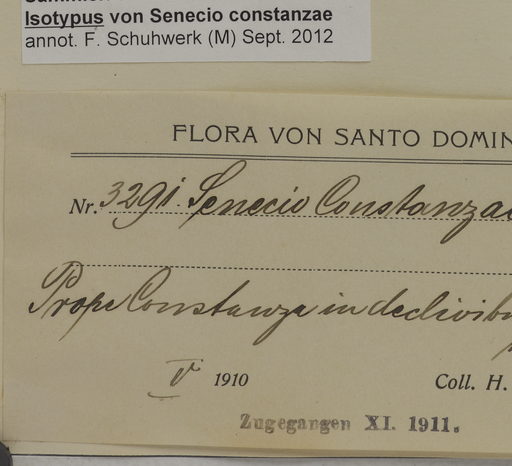 Isotypus von Senecio constanzae
annot. F. Schuhwerk (M) Sept. 2012
FLORA VON SANTO DOMIN
Nr. 3291. Senecio Constanzae
Prope Constanza in declivibu
V 1910 Coll. H.
Zugegangen XI. 1911.